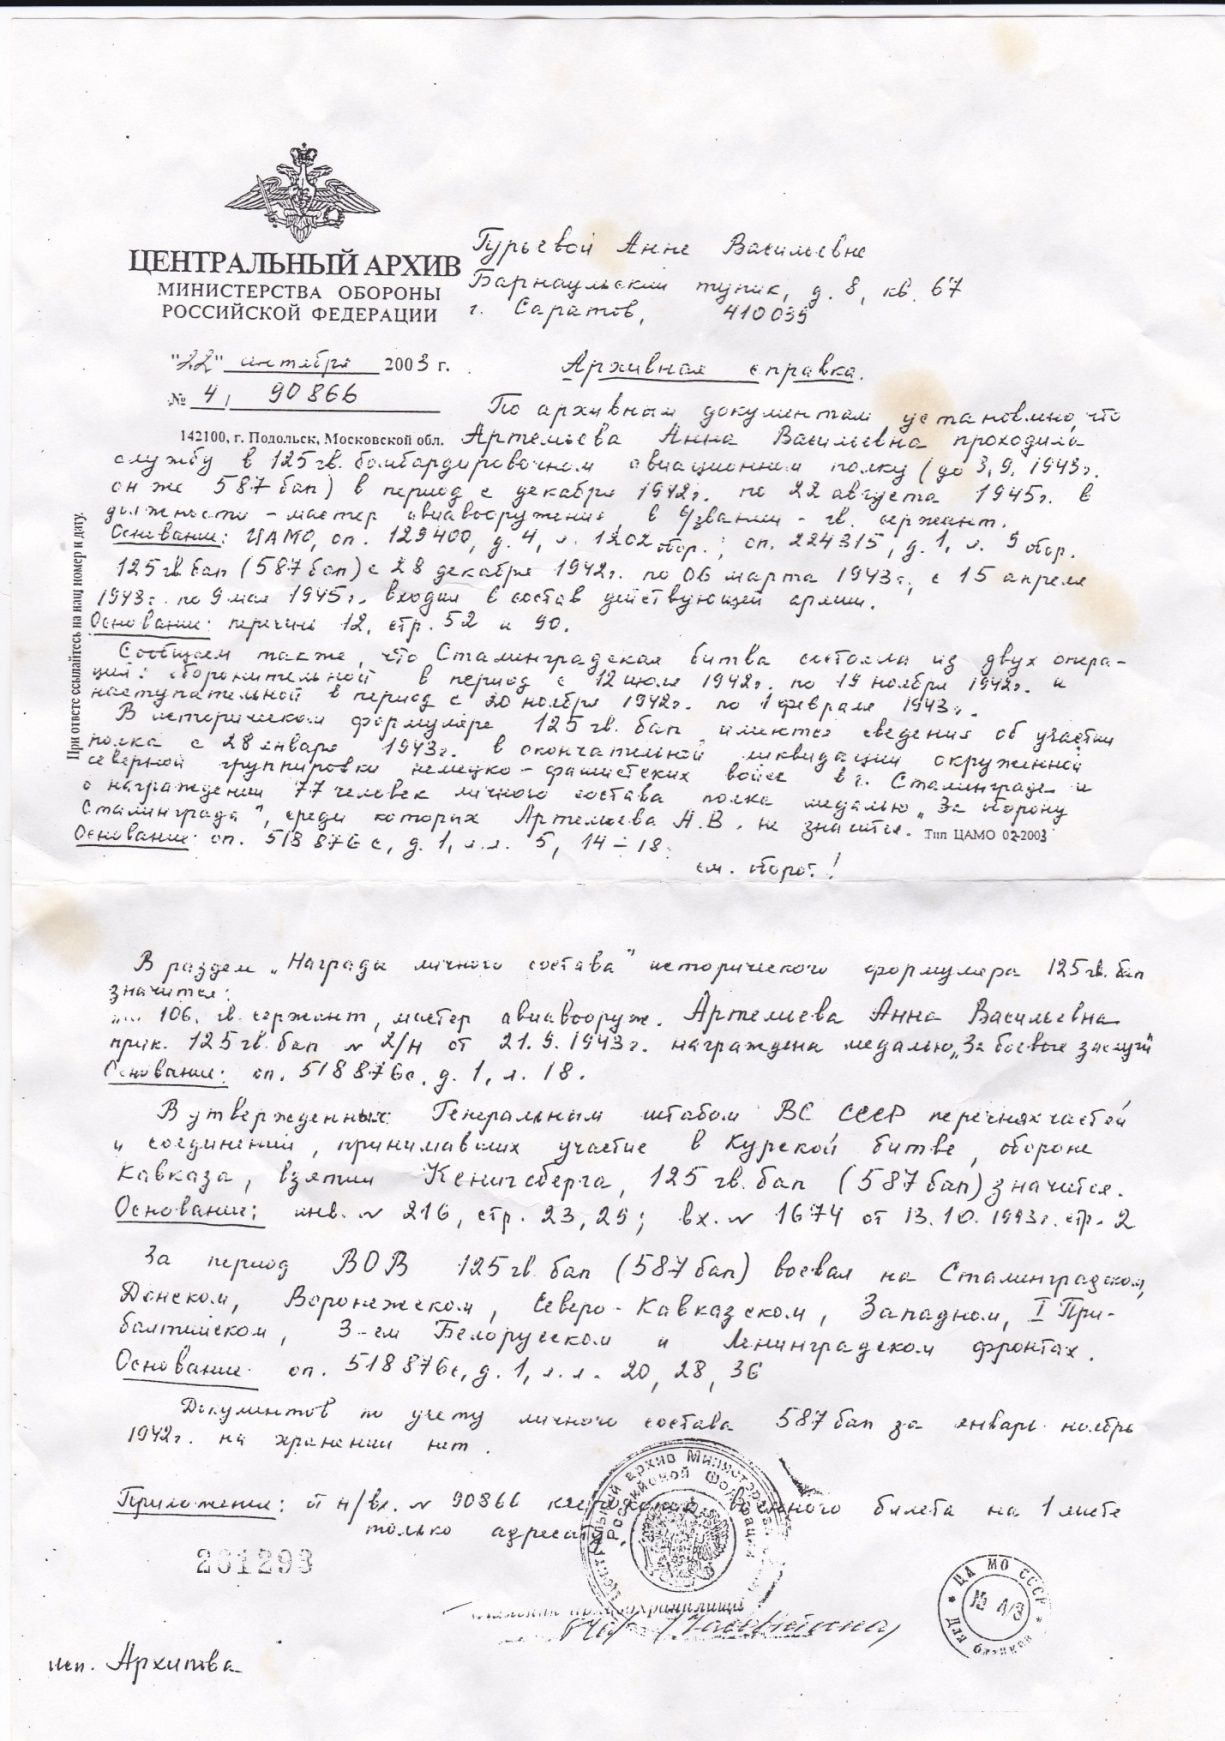 ЦЕНТРАЛЬНЫЙ АРХИВ
МИНИСТЕРСТВА ОБОРОНЫ
РОССИЙСКОЙ ФЕДЕРАЦИИ
"22" октября 2003 г.
№ 4, 90866
142100, г. Подольск, Московской обл.
При ответе ссылайтесь на наш номер и дату.
Гурьевой Анне Васильевне
Барнаульский тупик, д. 8, кв. 67
г. Саратов, 410039
Архивная справка.
По архивным документам установлено, что
Артемьева Анна Васильевна проходила
службу в 125 гв. бомбардировочном авиационном полку (до 3.9.1943г.
он же 587 бап) в период с декабря 1942г. по 22 августа 1945г. в
должности - мастер авиавооружения, в звании - гв. сержант.
Основание: ЦАМО, оп. 129400, д. 4, л. 1202 обор.; оп. 224315, д. 1, л. 9 обор.
125 гв бап (587 бап) с 28 декабря 1942г. по 06 марта 1943г., с 15 апреля
1943г. по 9 мая 1945г. входил в состав действующей армии.
Основание: перечень 12, стр. 52 и 90.
Сообщаем также, что Сталинградская битва состояла из двух опера-
ций: оборонительной в период с 12 июля 1942г. по 19 ноября 1942г. и
наступательной в период с 20 ноября 1942г. по 1 февраля 1943г.
В историческом формуляре 125 гв. бап имеются сведения об участии
полка с 28 января 1943г. в окончательной ликвидации окруженной
северной группировки немецко-фашистских войск в г. Сталинграде и
о награждении 77 человек личного состава полка медалью „За оборону
Сталинграда", среди которых Артемьева А.В. не значится.
Тип ЦАМО 02-2003
Основание: оп. 518876с, д. 1, л.л. 5, 14-18.
см. оборот!
В разделе „Награды личного состава" исторического формуляра 125 гв. бап
значится:
„... 106. гв. сержант, мастер авиавооруж. Артемьева Анна Васильевна
прик. 125 гв. бап № 2/н от 21.9.1943г. награждена медалью „За боевые заслуги"
Основание: оп. 518876с, д. 1, л. 18.
В утвержденных Генеральным штабом ВС СССР перечнях частей
и соединений, принимавших участие в Курской битве, обороне
Кавказа, взятии Кенигсберга, 125 гв. бап (587 бап) значится.
Основание: инв. № 216, стр. 23, 25; вх. № 1674 от 13.10.1993г. стр. 2
За период ВОВ 125 гв. бап (587 бап) воевал на Сталинградском,
Донском, Воронежском, Северо-Кавказском, Западном, I При-
балтийском, 3-ем Белорусском и Ленинградском фронтах.
Основание: оп. 518876с, д. 1, л.л. 20, 28, 36
Документов по учету личного состава 587 бап за январь-ноябрь
1942г. на хранении нет.
Приложение: от н/вх. № 90866 военного билета на 1 листе
только адресату.
201293
Центральный архив Министерства
Российской Федерации
архивохранилища
ЦА МО СССР
№ 4/3
Для справок
исп. Архипова